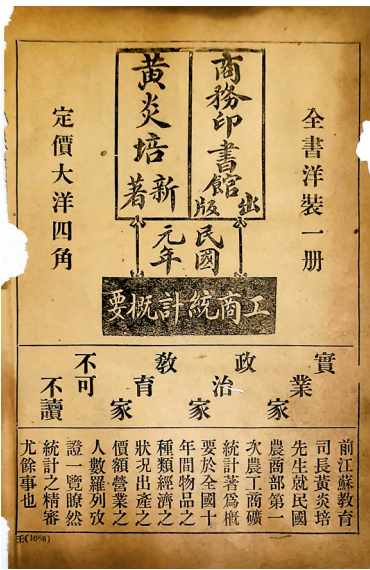 全書洋裝一册
商務印書館出版
黃炎培新著
定價大洋四角
民國
元年
工商統計概要
實業家
政治家
教育家
不可
不讀
前江蘇教育
司長黃炎培
先生就民國
農商部第一
次農工商礦
統計著爲概
要於全國十
年間物品之
種類經濟之
狀況出產之
價額營業之
人數羅列攷
證一覽瞭然
統計之精審
尤餘事也
壬(1086)